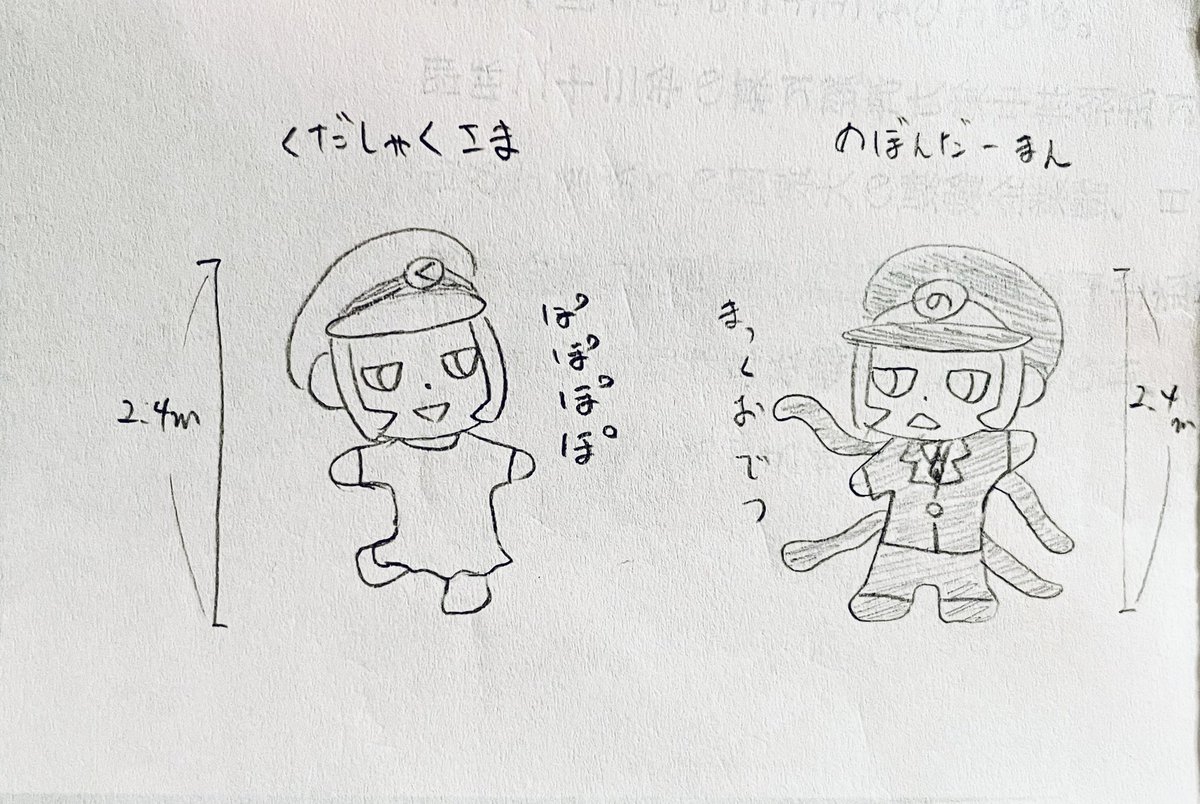 くだしゃくさま
く
ぽぽぽぽ
2.4m
のぼんだーまん
の
まっくおでつ
2.4
m